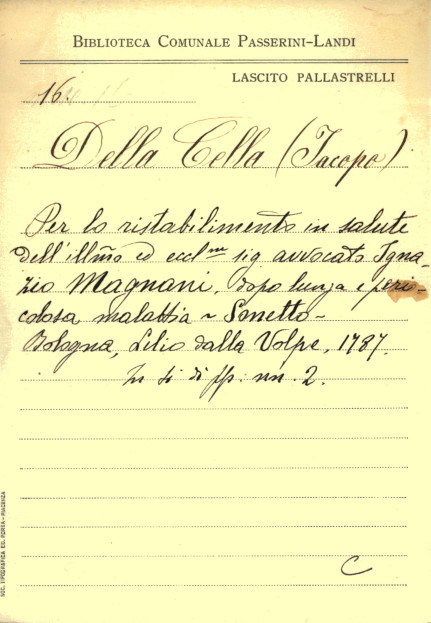 BIBLIOTECA COMUNALE PASSERINI-LANDI
LASCITO PALLASTRELLI
16.
Della Cella (Jacopo)
Per lo ristabilimento in salute
dell'illm̃o ed eccl.mo sig. avvocato Igna-
zio Magnani, dopo lunga e peri-
colosa malattia ~ Sonetto -
Bologna, Lelio dalla Volpe, 1787.
di pp. nn. 2.
C
SOC. TIPOGRAFICA ED. PORTA - PIACENZA